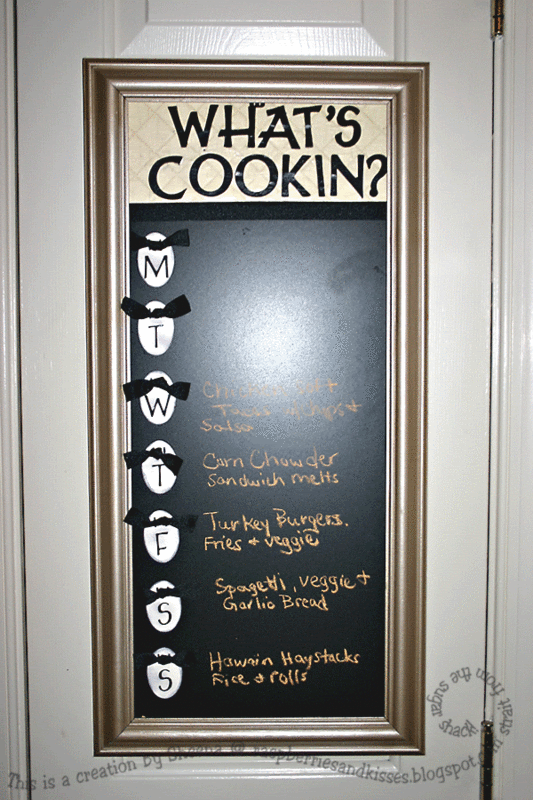 WHAT'S
COOKIN?
M
T
W
Chicken soft
Tacos w chips +
Salsa
T
Corn Chowder
Sandwich melts
F
Turkey Burgers.
Fries + veggie
S
Spagetti, veggie +
Garlic Bread
S
Hawain Haystacks
Rice + rolls
This is a creation by Sheena @ raspberriesandkisses.blogspot.com
straight from the sugar shack